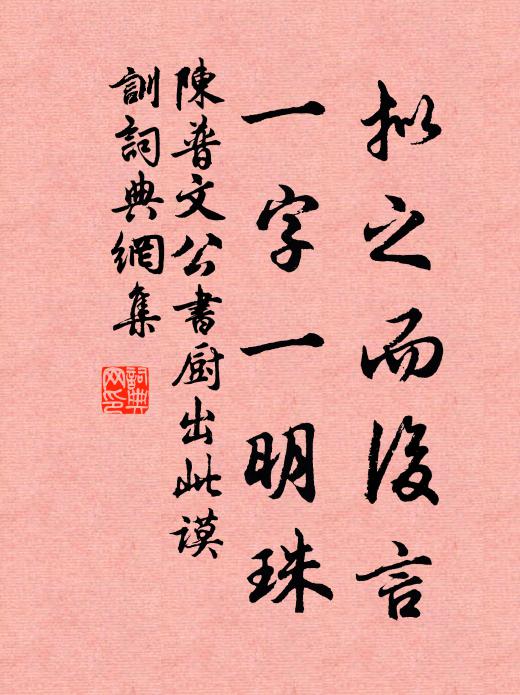 拟之而後言
一字一明珠
陳普文公書廚出此謨
訓詞典網集
詞典網印